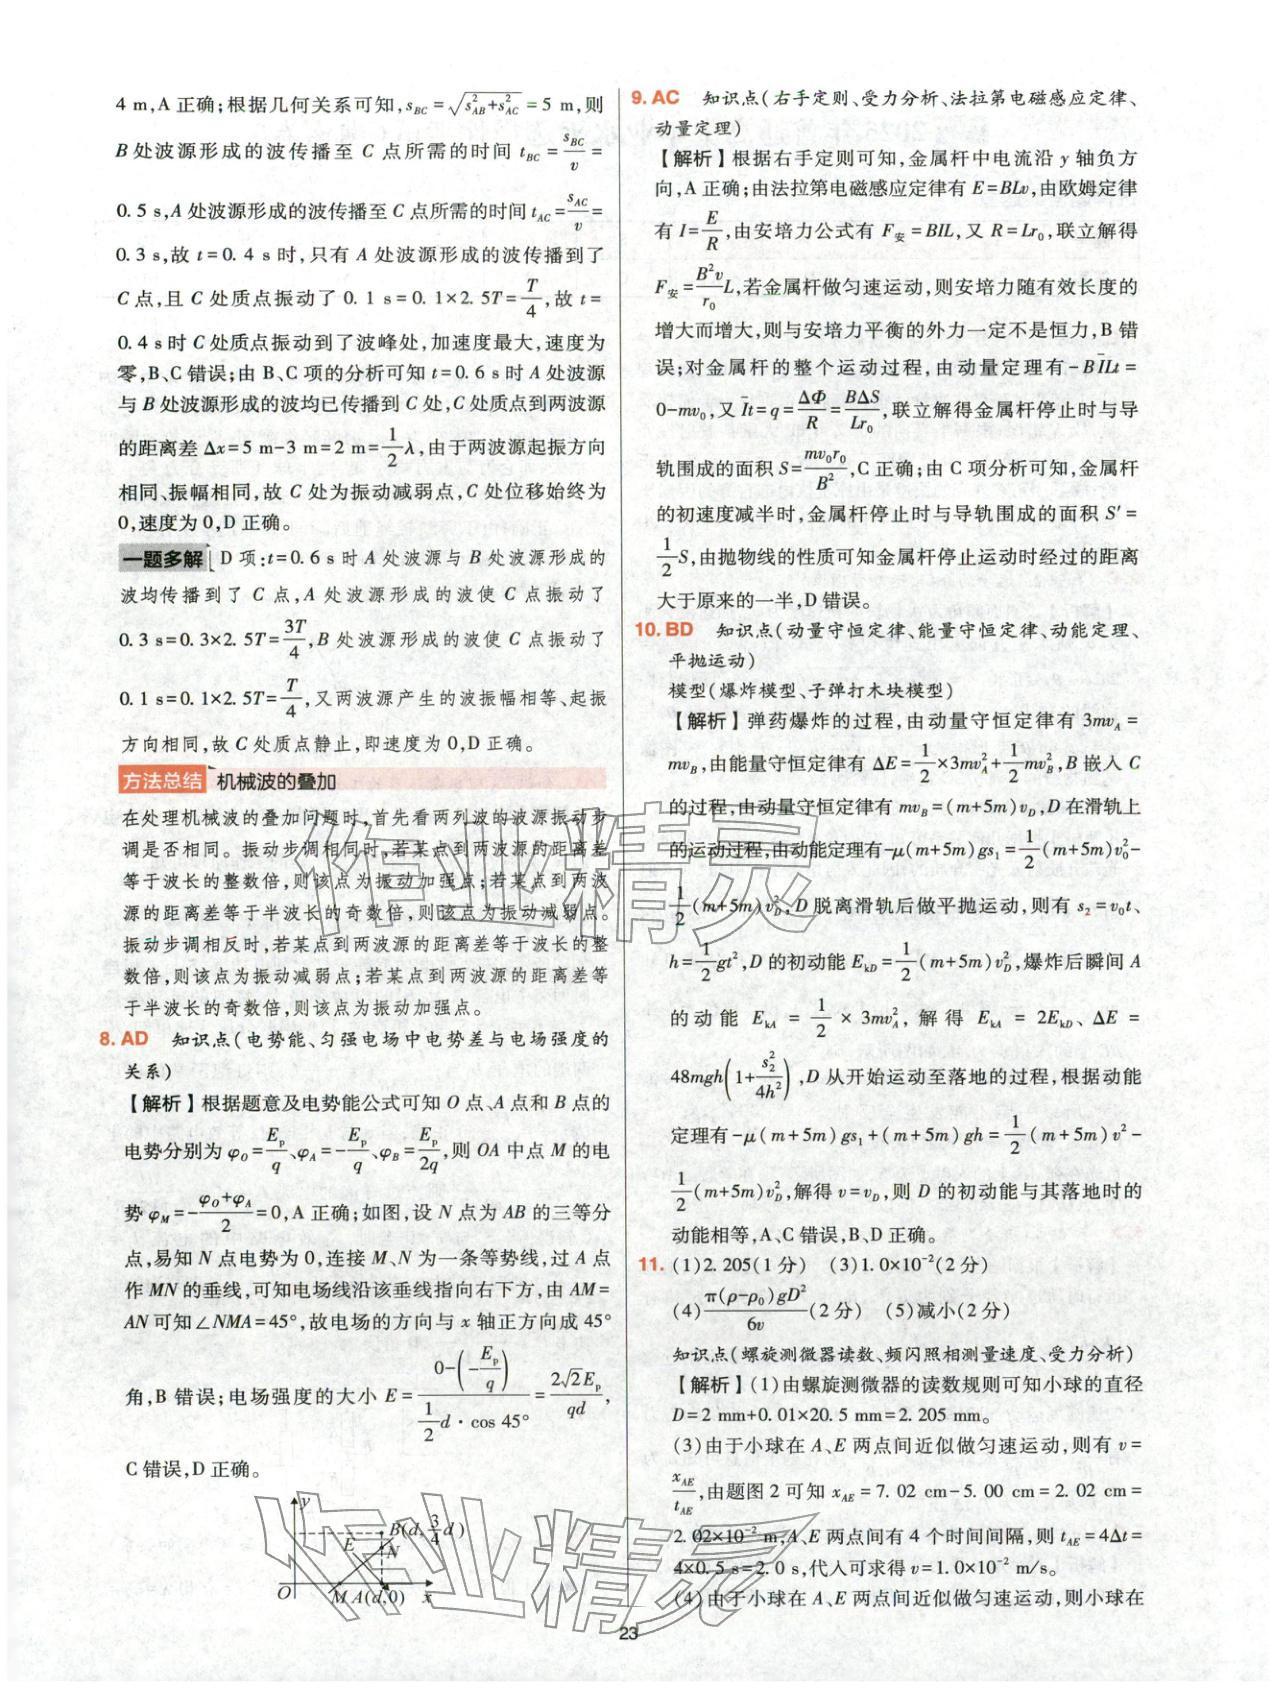 4 m,A 正确;根据几何关系可知,s_BC=√(s²_AB+s²_AC)=5 m,则
B处波源形成的波传播至 C 点所需的时间 t_BC=s_BC/v=
0.5 s,A处波源形成的波传播至C点所需的时间 t_AC=s_AC/v=
0.3 s,故 t=0.4 s时,只有 A 处波源形成的波传播到了
C点,且 C 处质点振动了 0.1 s=0.1×2.5T=T/4,故 t=
0.4 s时C处质点振动到了波峰处,加速度最大,速度为
零,B、C错误;由 B、C项的分析可知t=0.6 s时A处波源
与B处波源形成的波均已传播到C处,C处质点到两波源
的距离差 Δx=5 m-3 m=2 m=1/2λ,由于两波源起振方向
相同、振幅相同,故 C 处为振动减弱点,C处位移始终为
0,速度为0,D正确。
一题多解 D 项:t=0.6 s时A处波源与B处波源形成的
波均传播到了 C 点,A 处波源形成的波使 C 点振动了
0.3 s=0.3×2.5T=3T/4,B 处波源形成的波使 C 点振动了
0.1 s=0.1×2.5T=T/4,又两波源产生的波振幅相等、起振
方向相同,故C处质点静止,即速度为0,D正确。
方法总结 机械波的叠加
在处理机械波的叠加问题时,首先看两列波的波源振动步
调是否相同。振动步调相同时,若某点到两波源的距离差
等于波长的整数倍,则该点为振动加强点;若某点到两波
源的距离差等于半波长的奇数倍,则该点为振动减弱点。
振动步调相反时,若某点到两波源的距离差等于波长的整
数倍,则该点为振动减弱点;若某点到两波源的距离差等
于半波长的奇数倍,则该点为振动加强点。
8. AD 知识点(电势能、匀强电场中电势差与电场强度的
关系)
【解析】根据题意及电势能公式可知 O 点、A 点和 B 点的
电势分别为 φ_O=E_p/q、φ_A=-E_p/q、φ_B=E_p/2q,则 OA 中点 M 的电
势φ_M=-(φ_O+φ_A)/2=0,A正确;如图,设 N 点为 AB 的三等分
点,易知 N 点电势为 0,连接 M、N 为一条等势线,过 A 点
作 MN 的垂线,可知电场线沿该垂线指向右下方,由 AM=
AN可知∠NMA=45°,故电场的方向与 x 轴正方向成45°
角,B 错误;电场强度的大小 E=(0-(-E_p/q))/(1/2 d·cos 45°)=2√2E_p/qd,
C错误,D正确。
y
B(d,3/4d)
E
N
O
M A(d,0) x
9. AC 知识点(右手定则、受力分析、法拉第电磁感应定律、
动量定理)
【解析】根据右手定则可知,金属杆中电流沿 y 轴负方
向,A 正确;由法拉第电磁感应定律有 E=BLv,由欧姆定律
有 I=E/R,由安培力公式有 F_安=BIL,又 R=Lr₀,联立解得
F_安=B²v/r₀ L,若金属杆做匀速运动,则安培力随有效长度的
增大而增大,则与安培力平衡的外力一定不是恒力,B 错
误;对金属杆的整个运动过程,由动量定理有-BI̅Lt=
0-mv₀,又 I̅t=q=ΔΦ/R=BΔS/Lr₀,联立解得金属杆停止时与导
轨围成的面积 S=mv₀r₀/B²,C正确;由 C 项分析可知,金属杆
的初速度减半时,金属杆停止时与导轨围成的面积 S′=
1/2S,由抛物线的性质可知金属杆停止运动时经过的距离
大于原来的一半,D错误。
10. BD 知识点(动量守恒定律、能量守恒定律、动能定理、
平抛运动)
模型(爆炸模型、子弹打木块模型)
【解析】弹药爆炸的过程,由动量守恒定律有 3mv_A=
mv_B,由能量守恒定律有 ΔE=1/2×3mv²_A+1/2mv²_B,B 嵌入 C
的过程,由动量守恒定律有 mv_B=(m+5m)v_D,D在滑轨上
的运动过程,由动能定理有-μ(m+5m)gs₁=1/2(m+5m)v²₀-
1/2(m+5m)v²_D,D 脱离滑轨后做平抛运动,则有 s₂=v₀t、
h=1/2gt²,D的初动能E_kD=1/2(m+5m)v²_D,爆炸后瞬间 A
的动能 E_kA = 1/2 × 3mv²_A,解得 E_kA = 2E_kD、ΔE =
48mgh(1+s²₂/4h²),D从开始运动至落地的过程,根据动能
定理有-μ(m+5m)gs₁+(m+5m)gh=1/2(m+5m)v²-
1/2(m+5m)v²_D,解得 v=v_D,则 D 的初动能与其落地时的
动能相等,A、C错误,B、D正确。
11. (1)2.205(1分) (3)1.0×10⁻²(2分)
(4)π(ρ-ρ₀)gD²/6v(2分) (5)减小(2分)
知识点(螺旋测微器读数、频闪照相测量速度、受力分析)
【解析】(1)由螺旋测微器的读数规则可知小球的直径
D=2 mm+0.01×20.5 mm=2.205 mm。
(3)由于小球在 A、E 两点间近似做匀速运动,则有 v=
x_AE/t_AE,由题图 2 可知 x_AE=7.02 cm-5.00 cm=2.02 cm=
2.02×10⁻² m,A、E 两点间有 4 个时间间隔,则 t_AE=4Δt=
4×0.5 s=2.0 s,代入可求得v=1.0×10⁻² m/s。
(4)由于小球在 A、E 两点间近似做匀速运动,则小球在
23
作业精灵
作业精灵